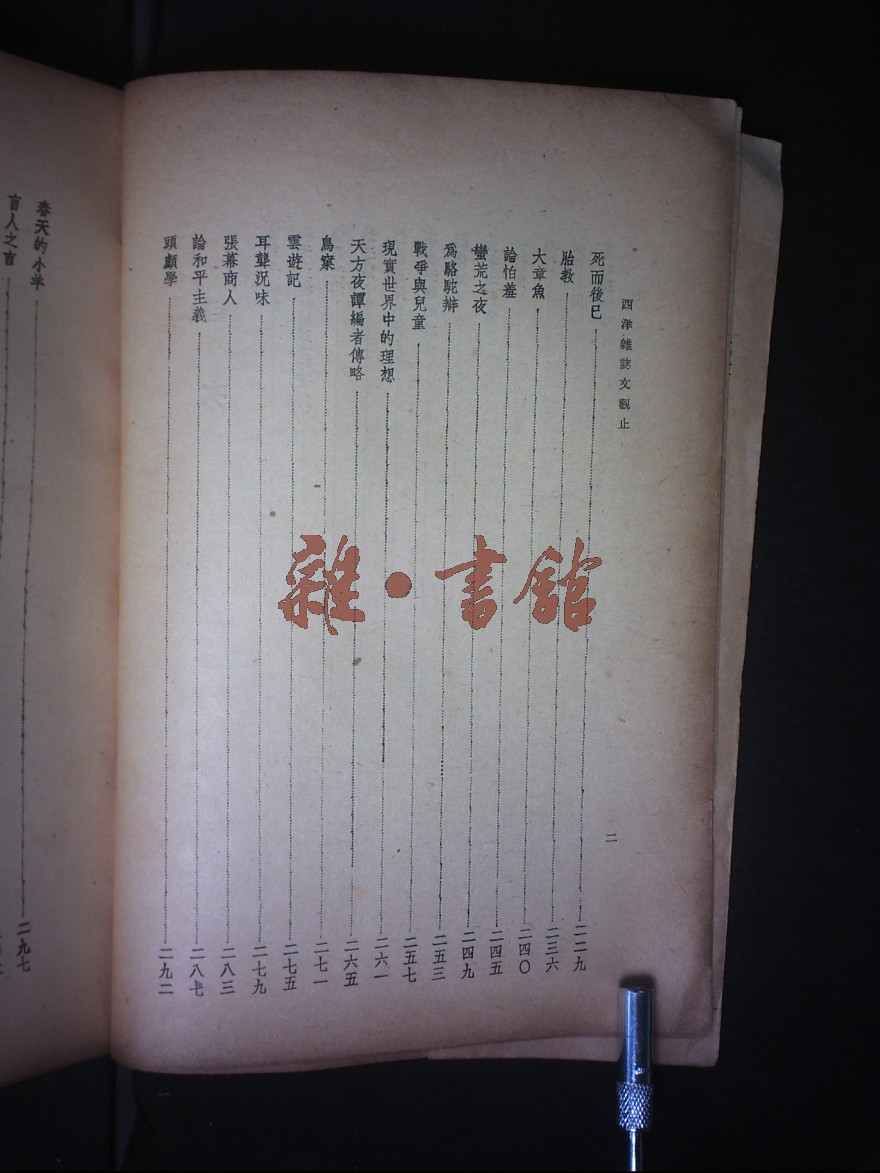 西洋雜誌文觀止
二
死而後已 二二九
胎教 二三六
大章魚 二四〇
論怕羞 二四五
蠻荒之夜 二四九
爲駱駝辯 二五三
戰爭與兒童 二五七
現實世界中的理想 二六一
天方夜譚編者傳略 二六五
鳥窠 二七一
雲遊記 二七五
耳聾況味 二七九
張幕商人 二八三
論和平主義 二八七
頭顱學 二九二
春天的小羊 二九七
盲人之言
雜·書館